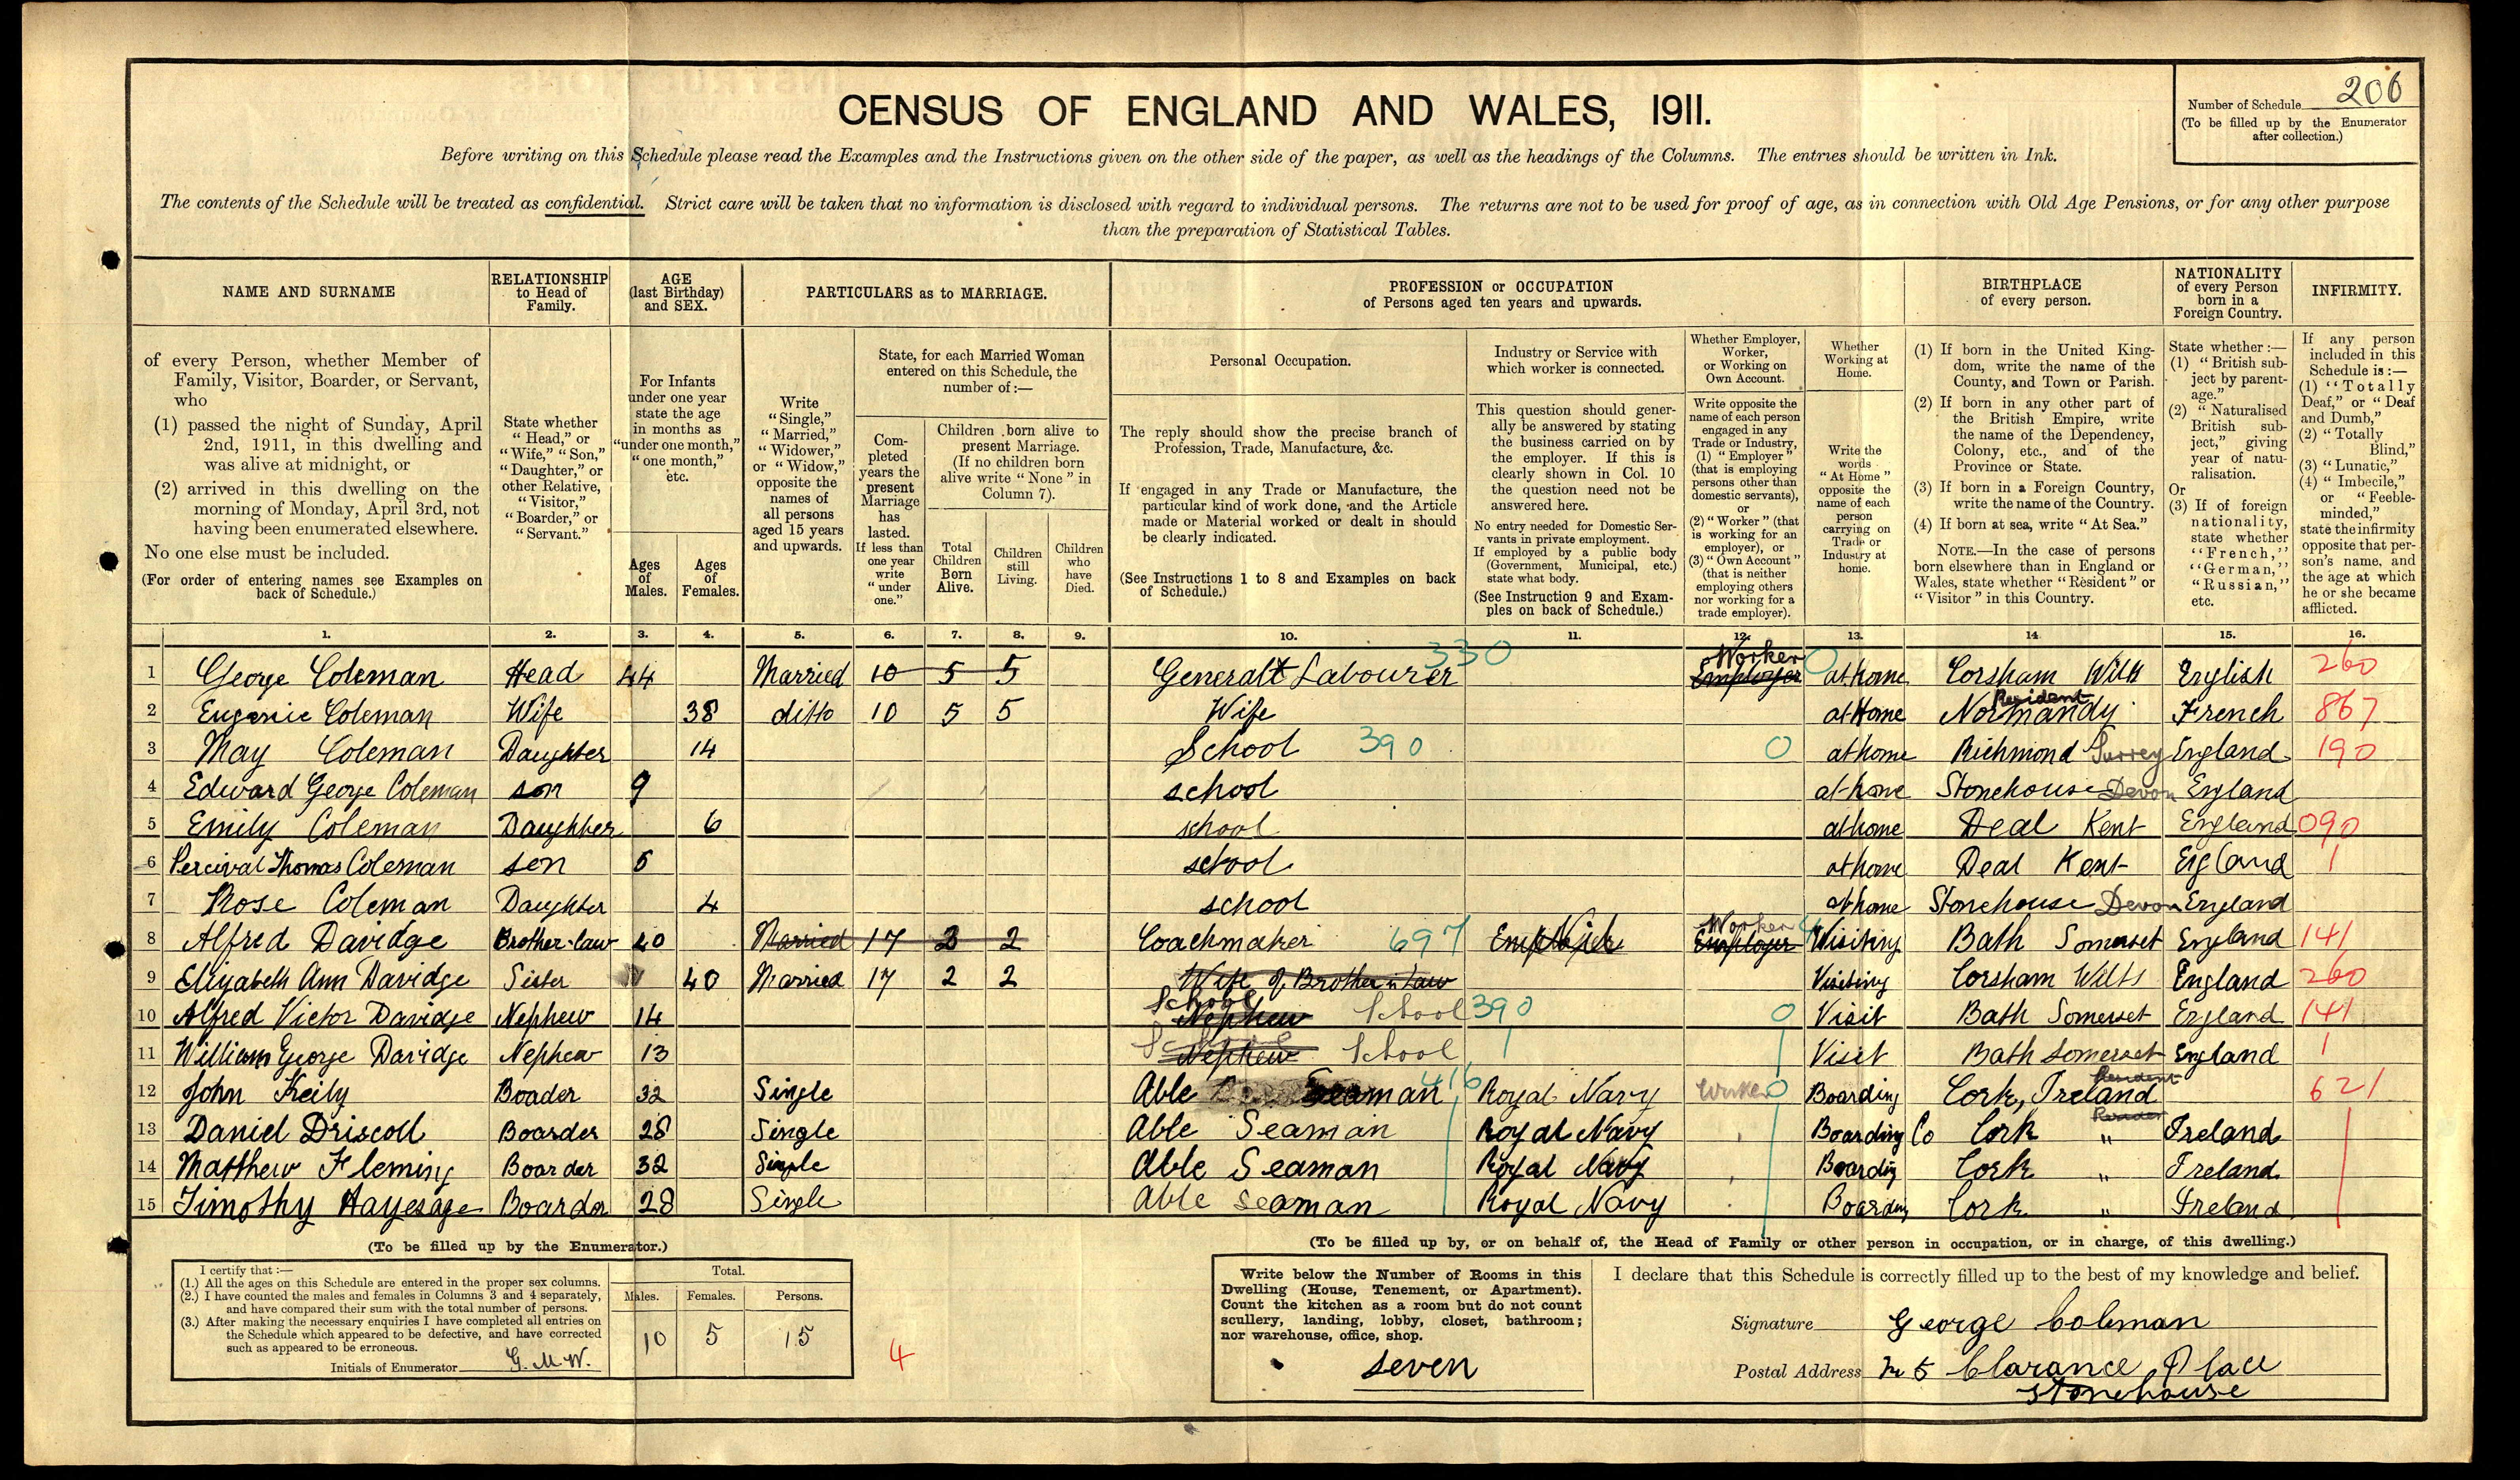 Number of Schedule 206
(To be filled up by the Enumerator
after collection.)
CENSUS OF ENGLAND AND WALES, 1911.
Before writing on this Schedule please read the Examples and the Instructions given on the other side of the paper, as well as the headings of the Columns. The entries should be written in Ink.
The contents of the Schedule will be treated as confidential. Strict care will be taken that no information is disclosed with regard to individual persons. The returns are not to be used for proof of age, as in connection with Old Age Pensions, or for any other purpose
than the preparation of Statistical Tables.
NAME AND SURNAME
RELATIONSHIP
to Head of
Family.
AGE
(last Birthday)
and SEX.
PARTICULARS as to MARRIAGE.
PROFESSION or OCCUPATION
of Persons aged ten years and upwards.
BIRTHPLACE
of every person.
NATIONALITY
of every Person
born in a
Foreign Country.
INFIRMITY.
of every Person, whether Member of
Family, Visitor, Boarder, or Servant,
who
(1) passed the night of Sunday, April
2nd, 1911, in this dwelling and
was alive at midnight, or
(2) arrived in this dwelling on the
morning of Monday, April 3rd, not
having been enumerated elsewhere.
No one else must be included.
(For order of entering names see Examples on
back of Schedule.)
State whether
"Head," or
"Wife," "Son,"
"Daughter," or
other Relative,
"Visitor,"
"Boarder," or
"Servant."
For Infants
under one year
state the age
in months as
"under one month,"
"one month,"
etc.
Ages
of
Males.
Ages
of
Females.
Write
"Single,"
"Married,"
"Widower,"
or "Widow,"
opposite the
names of
all persons
aged 15 years
and upwards.
State, for each Married Woman
entered on this Schedule, the
number of:—
Com-
pleted
years the
present
Marriage
has
lasted.
If less than
one year
write
"under
one."
Children born alive to
present Marriage.
(If no children born
alive write "None" in
Column 7).
Total
Children
Born
Alive.
Children
still
Living.
Children
who
have
Died.
Personal Occupation.
The reply should show the precise branch of
Profession, Trade, Manufacture, &c.
If engaged in any Trade or Manufacture, the
particular kind of work done, and the Article
made or Material worked or dealt in should
be clearly indicated.
(See Instructions 1 to 8 and Examples on back
of Schedule.)
Industry or Service with
which worker is connected.
This question should gener-
ally be answered by stating
the business carried on by
the employer. If this is
clearly shown in Col. 10
the question need not be
answered here.
No entry needed for Domestic Ser-
vants in private employment.
If employed by a public body
(Government, Municipal, etc.)
state what body.
(See Instruction 9 and Exam-
ples on back of Schedule.)
Whether Employer,
Worker,
or Working on
Own Account.
Write opposite the
name of each person
engaged in any
Trade or Industry,
(1) "Employer"
(that is employing
persons other than
domestic servants),
or
(2) "Worker" (that
is working for an
employer), or
(3) "Own Account"
(that is neither
employing others
nor working for a
trade employer).
Whether
Working at
Home.
Write the
words
"At Home"
opposite the
name of each
person
carrying on
Trade or
Industry at
home.
(1) If born in the United King-
dom, write the name of the
County, and Town or Parish.
(2) If born in any other part of
the British Empire, write
the name of the Dependency,
Colony, etc., and of the
Province or State.
(3) If born in a Foreign Country,
write the name of the Country.
(4) If born at sea, write "At Sea."
NOTE.—In the case of persons
born elsewhere than in England or
Wales, state whether "Resident" or
"Visitor" in this Country.
State whether:—
(1) "British sub-
ject by parent-
age."
(2) "Naturalised
British sub-
ject," giving
year of natu-
ralisation.
Or
(3) If of foreign
nationality,
state whether
"French,"
"German,"
"Russian,"
etc.
If any person
included in this
Schedule is:—
(1) "Totally
Deaf," or "Deaf
and Dumb,"
(2) "Totally
Blind,"
(3) "Lunatic,"
(4) "Imbecile,"
or "Feeble-
minded,"
state the infirmity
opposite that per-
son's name, and
the age at which
he or she became
afflicted.
1. 2. 3. 4. 5. 6. 7. 8. 9. 10. 11. 12. 13. 14. 15. 16.
1 George Coleman Head 44 Married 10 5 5 General Labourer 330 Worker Employer 0 at home Corsham Wilts English 260
2 Eugenie Coleman Wife 38 ditto 10 5 5 Wife at Home Normandy Resident French 867
3 May Coleman Daughter 14 School 390 0 at home Richmond Surrey England 190
4 Edward George Coleman son 9 school at home Stonehouse Devon England
5 Emily Coleman Daughter 6 school at home Deal Kent England 090
6 Percival Thomas Coleman son 5 school at home Deal Kent England
7 Rose Coleman Daughter 4 school at home Stonehouse Devon England
8 Alfred Davidge Brother-law 40 Married 17 2 2 Coachmaker 697 Worker Employer Visiting Bath Somerset England 141
9 Elizabeth Ann Davidge Sister 40 Married 17 2 2 Wife of Brother in law Visiting Corsham Wilts England 260
10 Alfred Victor Davidge Nephew 14 School Nephew School 390 0 Visit Bath Somerset England 141
11 William George Davidge Nephew 13 Nephew School Visit Bath Somerset England
12 John Keily Boader 32 Single Able Seaman 416 Royal Navy Worker 0 Boarding Cork, Ireland Resident 621
13 Daniel Driscoll Boarder 28 Single Able Seaman Royal Navy Boarding Co Cork " Ireland
14 Matthew Fleming Boarder 32 Single Able Seaman Royal Navy Boarding Cork " Ireland
15 Timothy Boarder 28 Single Able seaman Royal Navy Boarding Cork " Ireland
(To be filled up by the Enumerator.)
I certify that:—
(1.) All the ages on this Schedule are entered in the proper sex columns.
(2.) I have counted the males and females in Columns 3 and 4 separately,
and have compared their sum with the total number of persons.
(3.) After making the necessary enquiries I have completed all entries on
the Schedule which appeared to be defective, and have corrected
such as appeared to be erroneous.
Initials of Enumerator G. M. W.
Total.
Males. Females. Persons.
10 5 15
4
(To be filled up by, or on behalf of, the Head of Family or other person in occupation, or in charge, of this dwelling.)
Write below the Number of Rooms in this
Dwelling (House, Tenement, or Apartment).
Count the kitchen as a room but do not count
scullery, landing, lobby, closet, bathroom;
nor warehouse, office, shop.
seven
I declare that this Schedule is correctly filled up to the best of my knowledge and belief.
Signature George Coleman
Postal Address No 5 Clarance Place
Stonehouse